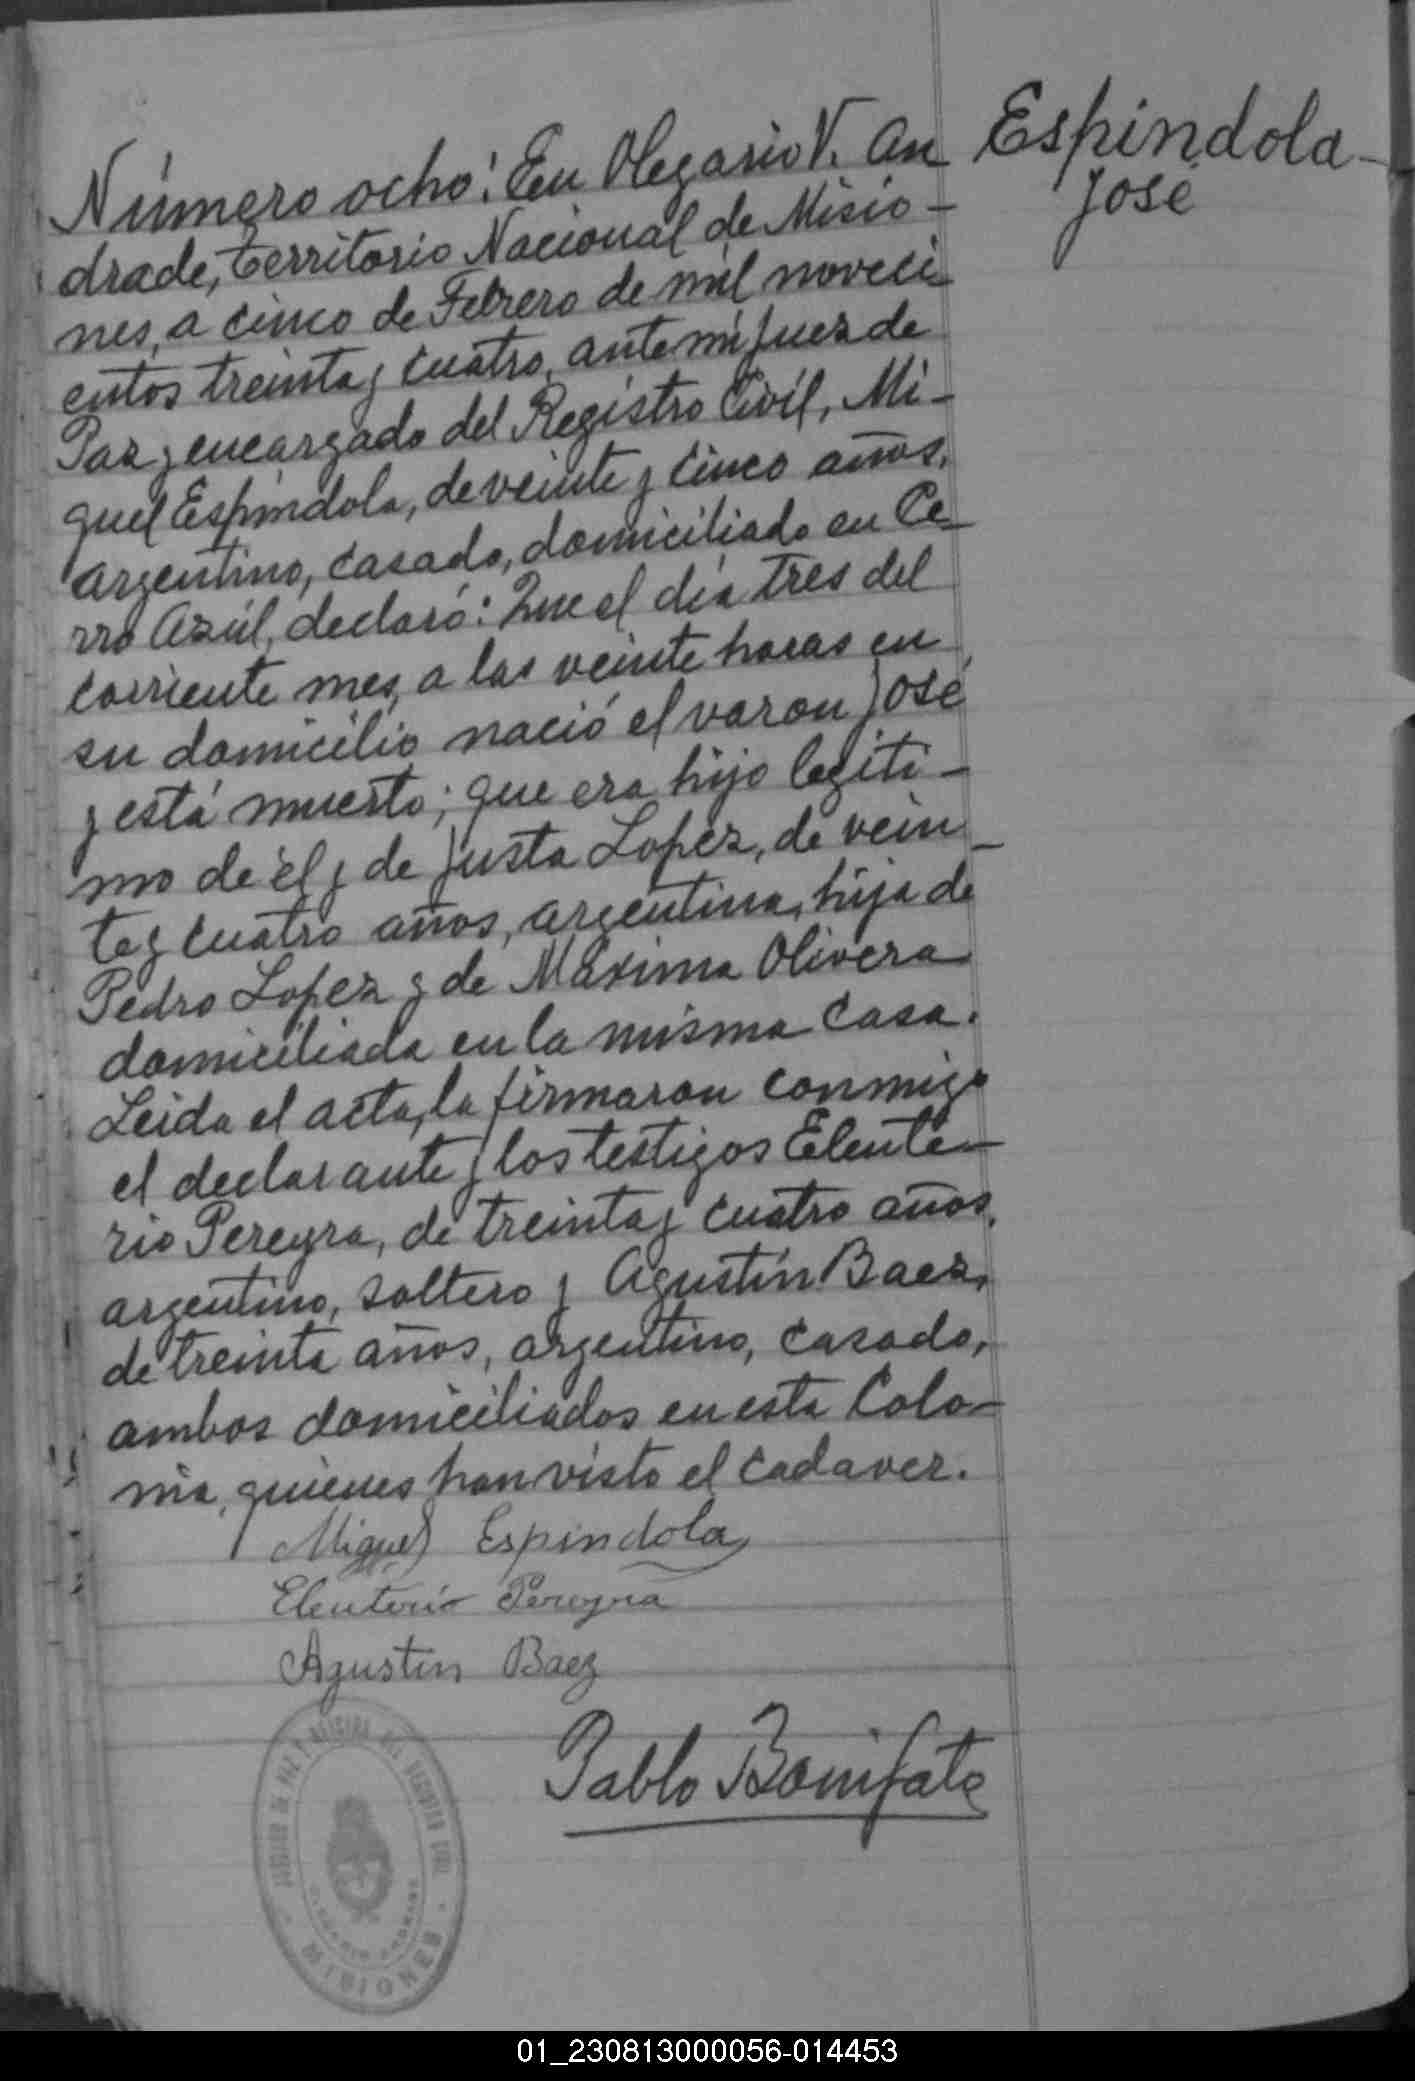 Número ocho: En Olegario V. An
drade, territorio Nacional de Misio-
nes, a cinco de Febrero de mil noveci
entos treinta y cuatro, ante mi Juez de
Paz y encargado del Registro Civíl, Mi-
guel Espíndola, de veinte y cinco años,
argentino, casado, domiciliado en Ce-
rro Azúl, declaró: Que el día tres del
corriente mes, a las veinte horas en
su domicilio nació el varon José
y está muerto; que era hijo legiti-
mo de él y de Justa Lopez, de vein-
te y cuatro años, argentina, hija de
Pedro Lopez y de Máxima Olivera
domiciliada en la misma casa.
Leida el acta, la firmaron conmigo
el declarante y los testigos Eleute-
rio Pereyra, de treinta y cuatro años,
argentino, soltero y Agustín Baez,
de treinta años, argentino, casado,
ambos domiciliados en esta Colo-
nia, quienes han visto el cadaver.
Miguel Espindola
Eleuterio Pereyra
Agustin Baez
Pablo Bonifato
Espíndola-
José
JUZGADO DE PAZ Y OFICINA DEL REGISTRO CIVIL
MISIONES
01_230813000056-014453